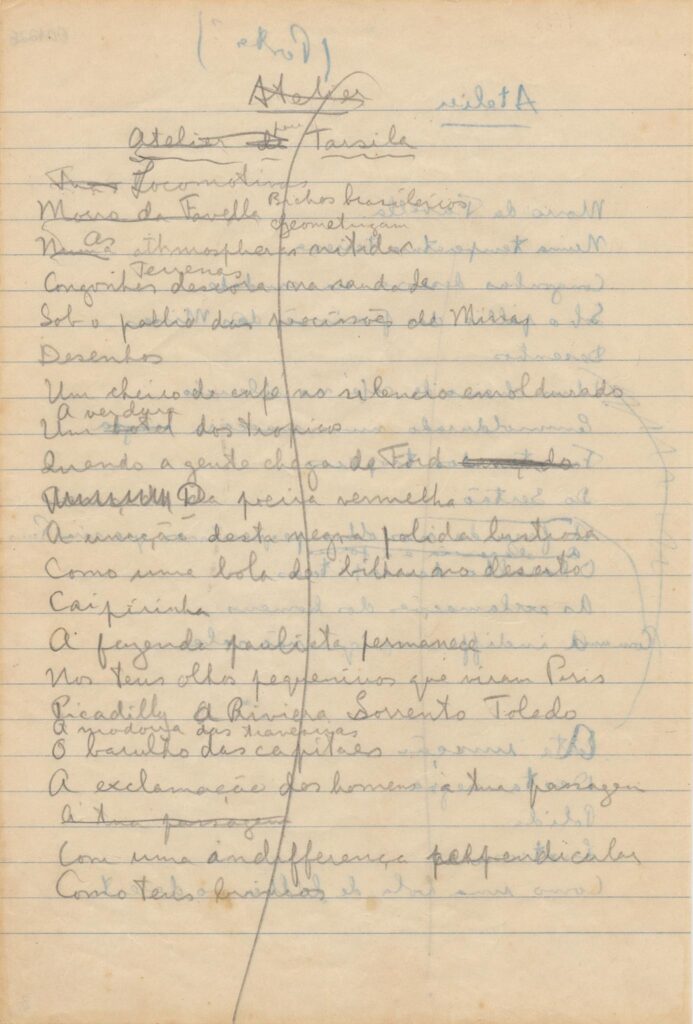 Atelier
Atelier de Tarsila
Locomotivas
Bichos brasileiros
Morro da Favella geometrizam
As athmospheras nitidas
Terrenas
Congonhas descora na saudade
Sob o pallio das procissões de Minas
Desenhos
Um cheiro de café no silencio emoldurado
A verdura
Um dos tropicos
Quando a gente chega de Ford
Da poeira vermelha
A uncção desta negra polida lustrosa
Como uma bola de bilhar no deserto
Caipirinha
A fazenda paulista permanece
Nos teus olhos pequeninos que viram Paris
Picadilly A Riviera Sorrento Toledo
A modorra das travessias
O barulho das capitaes
A exclamação dos homens á tua passagem
A tua passagem
Com uma indifferença perpendicular
Como teus brincos